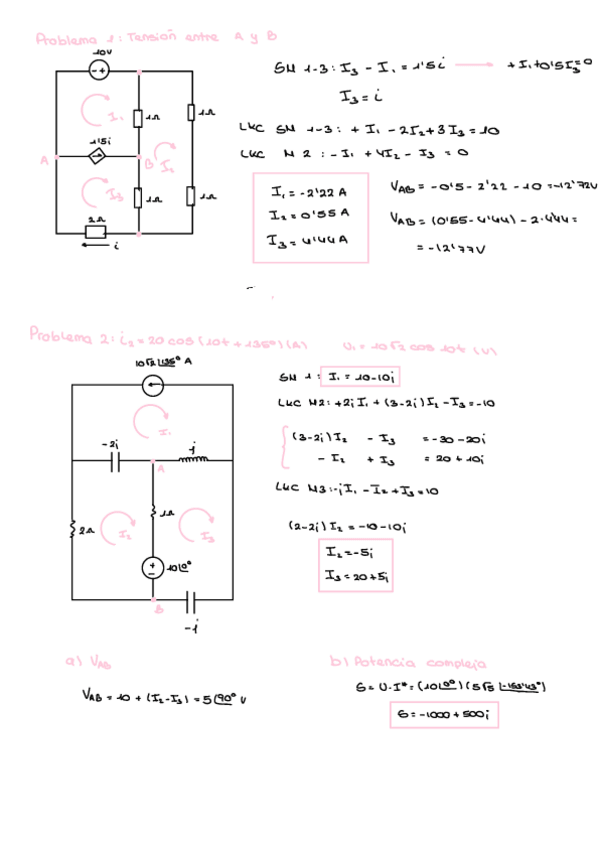 Problema 1: Tensión entre A y B
10V
- +
I₁
1Ω
1Ω
1'5i
A
B
I₂
I₃
1Ω
1Ω
2Ω
i
SM 1-3: I₃ - I₁ = 1'5i → + I₁ + 0'5I₃ = 0
I₃ = i
LKC SM 1-3: + I₁ - 2I₂ + 3I₃ = 10
LKC M 2: - I₁ + 4I₂ - I₃ = 0
I₁ = -2'22 A
I₂ = 0'55 A
I₃ = 4'44 A
VAB = -0'5 - 2'22 - 10 = -12'72V
VAB = (0'55 - 4'44) - 2·4'44 =
= -12'77V
Problema 2: i₂ = 20 cos (10t + 135°) (A) U₁ = 10√2 cos 10t (V)
10√2 |135° A
I₁
-2i
j
A
2Ω
1Ω
I₂
I₃
+
-
10|0°
B
-j
SM 1: I₁ = 10-10j
LKC M2: +2j I₁ + (3-2j) I₂ - I₃ = -10
(3-2j) I₂ - I₃ = -30-20j
- I₂ + I₃ = 20 + 10j
LKC M3: -j I₁ - I₂ + I₃ = 10
(2-2j) I₂ = -10-10j
I₂ = -5j
I₃ = 20+5j
a) VAB
VAB = 10 + (I₂-I₃) = 5|90° V
b) Potencia compleja
S = U·I* = (10|0°) (5√5 |-153'43°)
S = -1000 + 500j